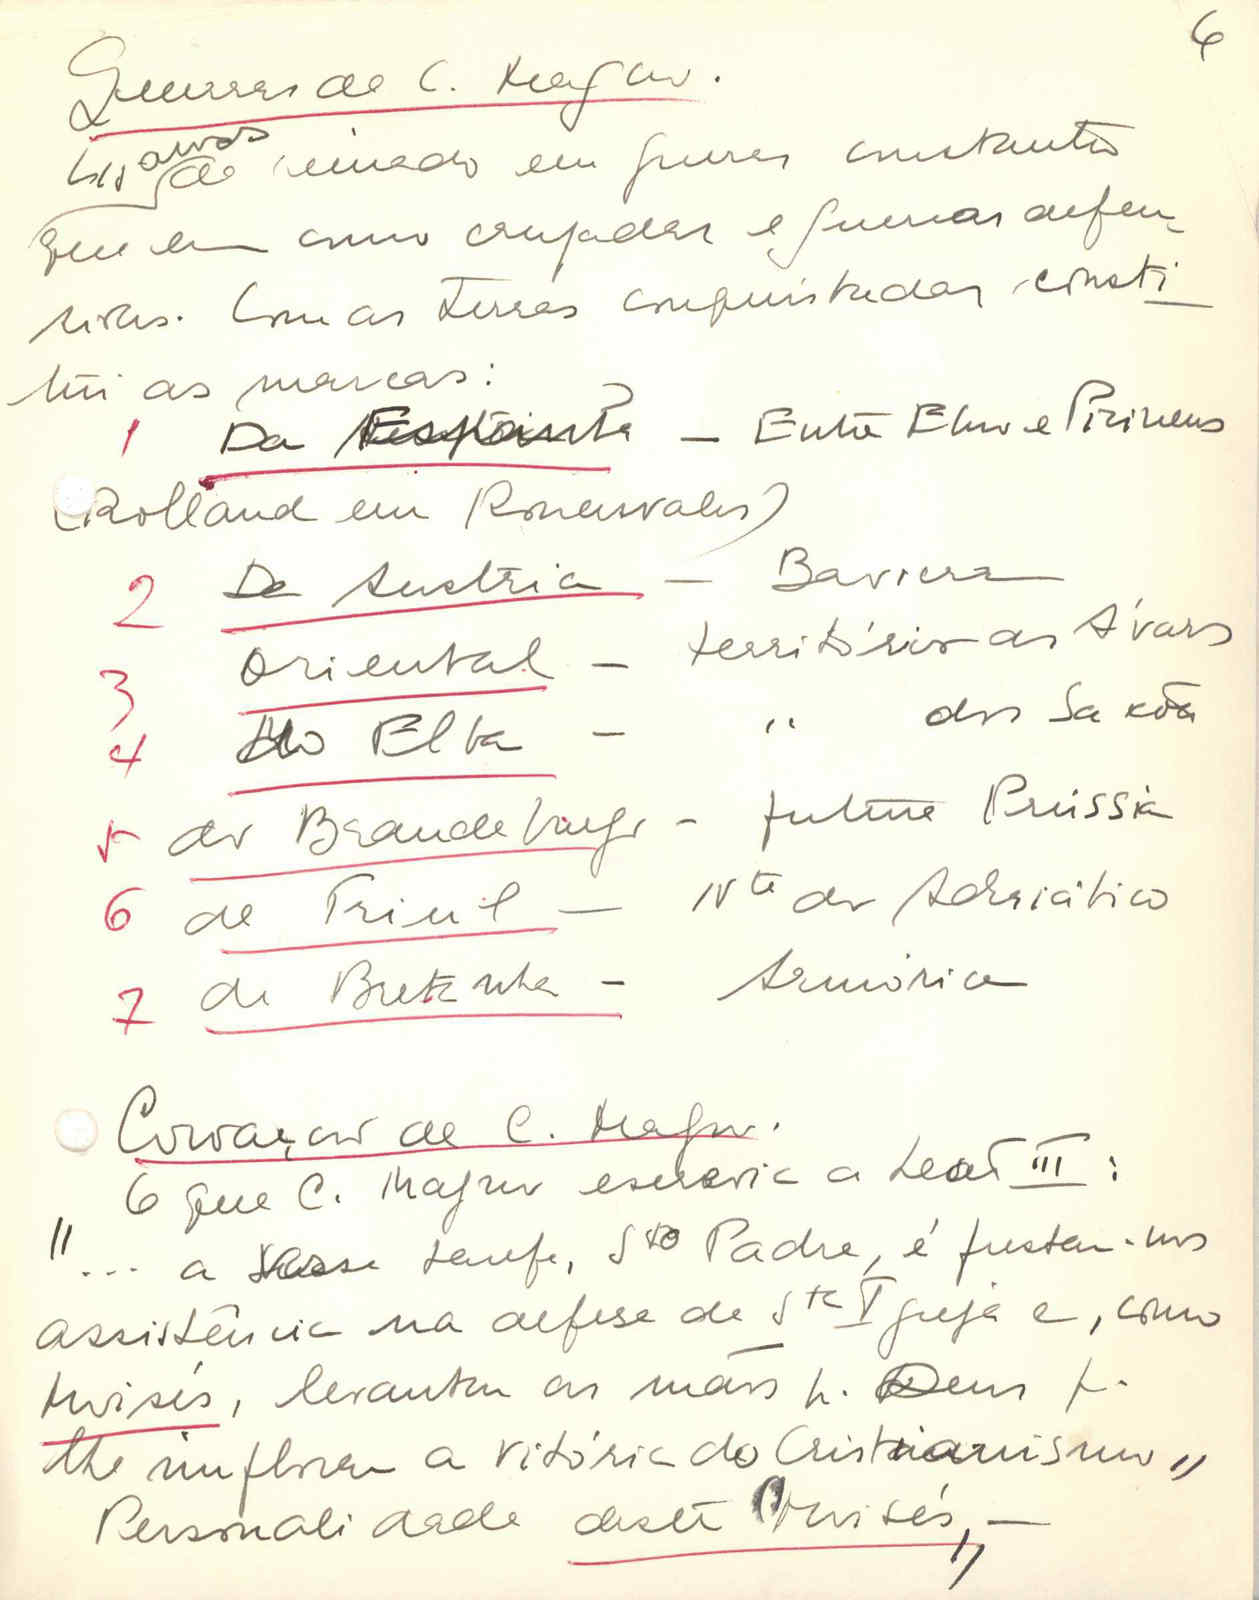 6
Guerras de C. Magno.
anos
de reinado em guerra constante
que em como cruzadas e guerras defen
sivas. Com as terras conquistadas consti
tui as marcas:
1 Da Espanha – Entre Ebro e Pirineus
(Rolland em Roncesvales)
2 Da Austria – Baviera
3 Oriental – território as Ávaro
4 do Elba – " dos Saxões
5 do Brandeburgo – futura Prússia
6 de Friul – Nte do Adriático
7 da Bretanha – Armórica
Coroação de C. Magno.
O que C. Magno escrevia a Leão III:
"... a vossa tarefa, Sto Padre, é prestar-nos
assistência na defesa da Sta Igreja e, como
Moisés, levantar as mãos p. Deus p.
lhe implorar a vitória do Cristianismo"
Personalidade deste "Moisés" –